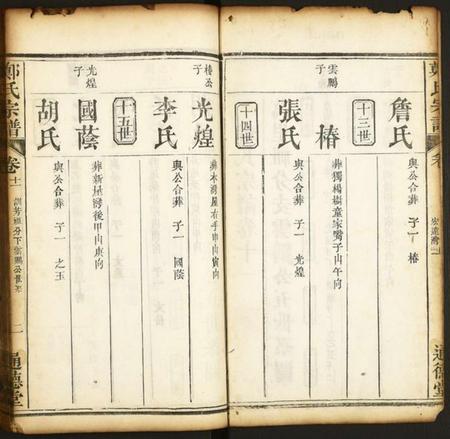 鄭氏宗譜
卷
通德堂
詹氏
與公合葬 子一 椿
十三世
雲鵬子
椿
葬獨楊樹童家嘴子山午向
張氏
與公合葬 子一 光煌
十四世
椿公子
光煌
葬木灣屋右手申山寅向
李氏
與公合葬 子一 國蔭
十五世
光煌子
國蔭
葬新屋灣後甲山庚向
胡氏
與公合葬 子一 之玉
鄭氏宗譜
卷十一
二
通德堂